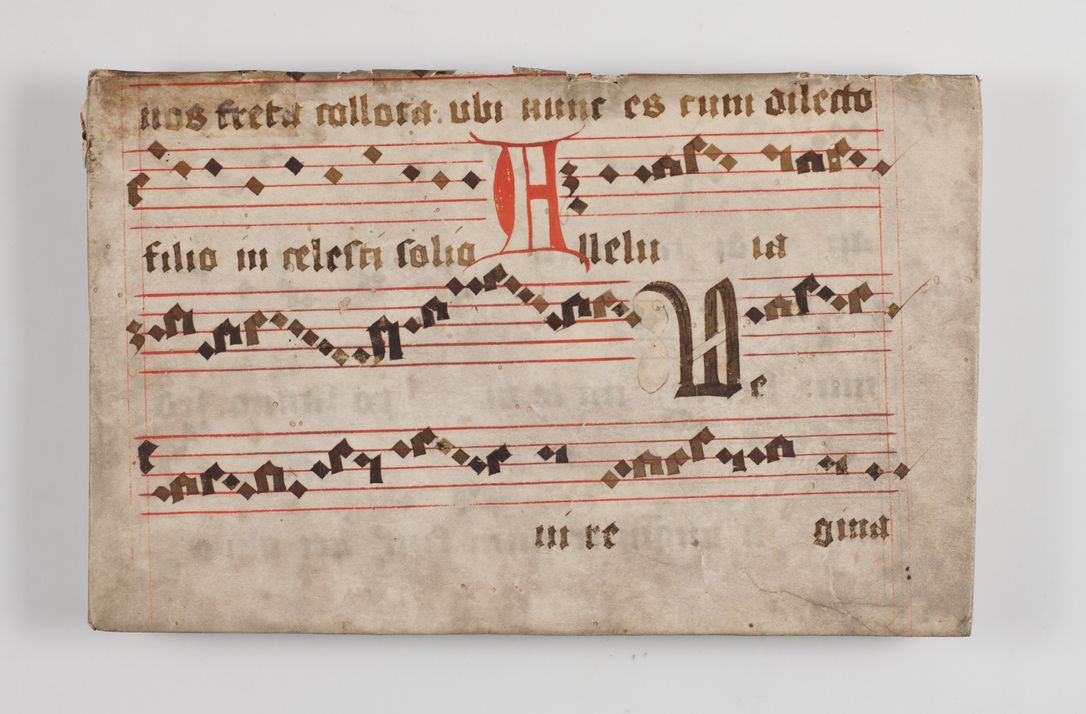 nos freta collota. ubi nunc es cum dilecto
filio in celesti solio Allelu ia
Ve
ni re gina